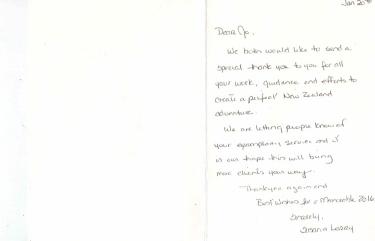 Jan 20
Dear Jo,
We both would like to send a
special thank you to you for all
your work, guidance and efforts to
create a perfect New Zealand
adventure.
We are letting people know of
your exemplary service and it
is our hope this will bring
more clients your way.
Thankyou again and
Best Wishes for a 2016
Sincerely,